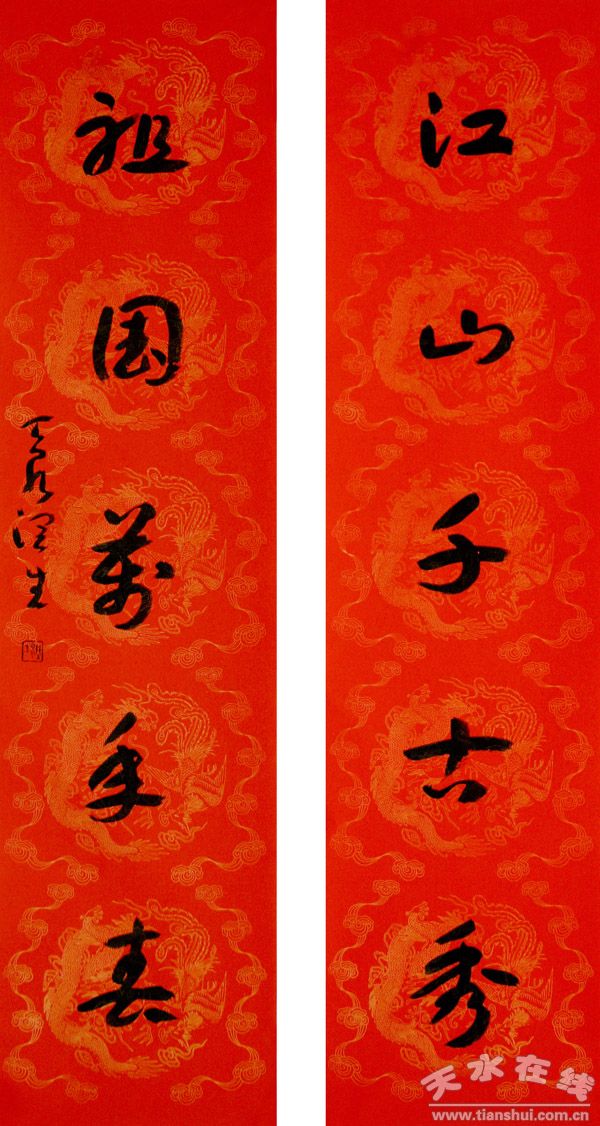 江山千古秀
祖国萬年春
天水在线
www.tianshui.com.cn